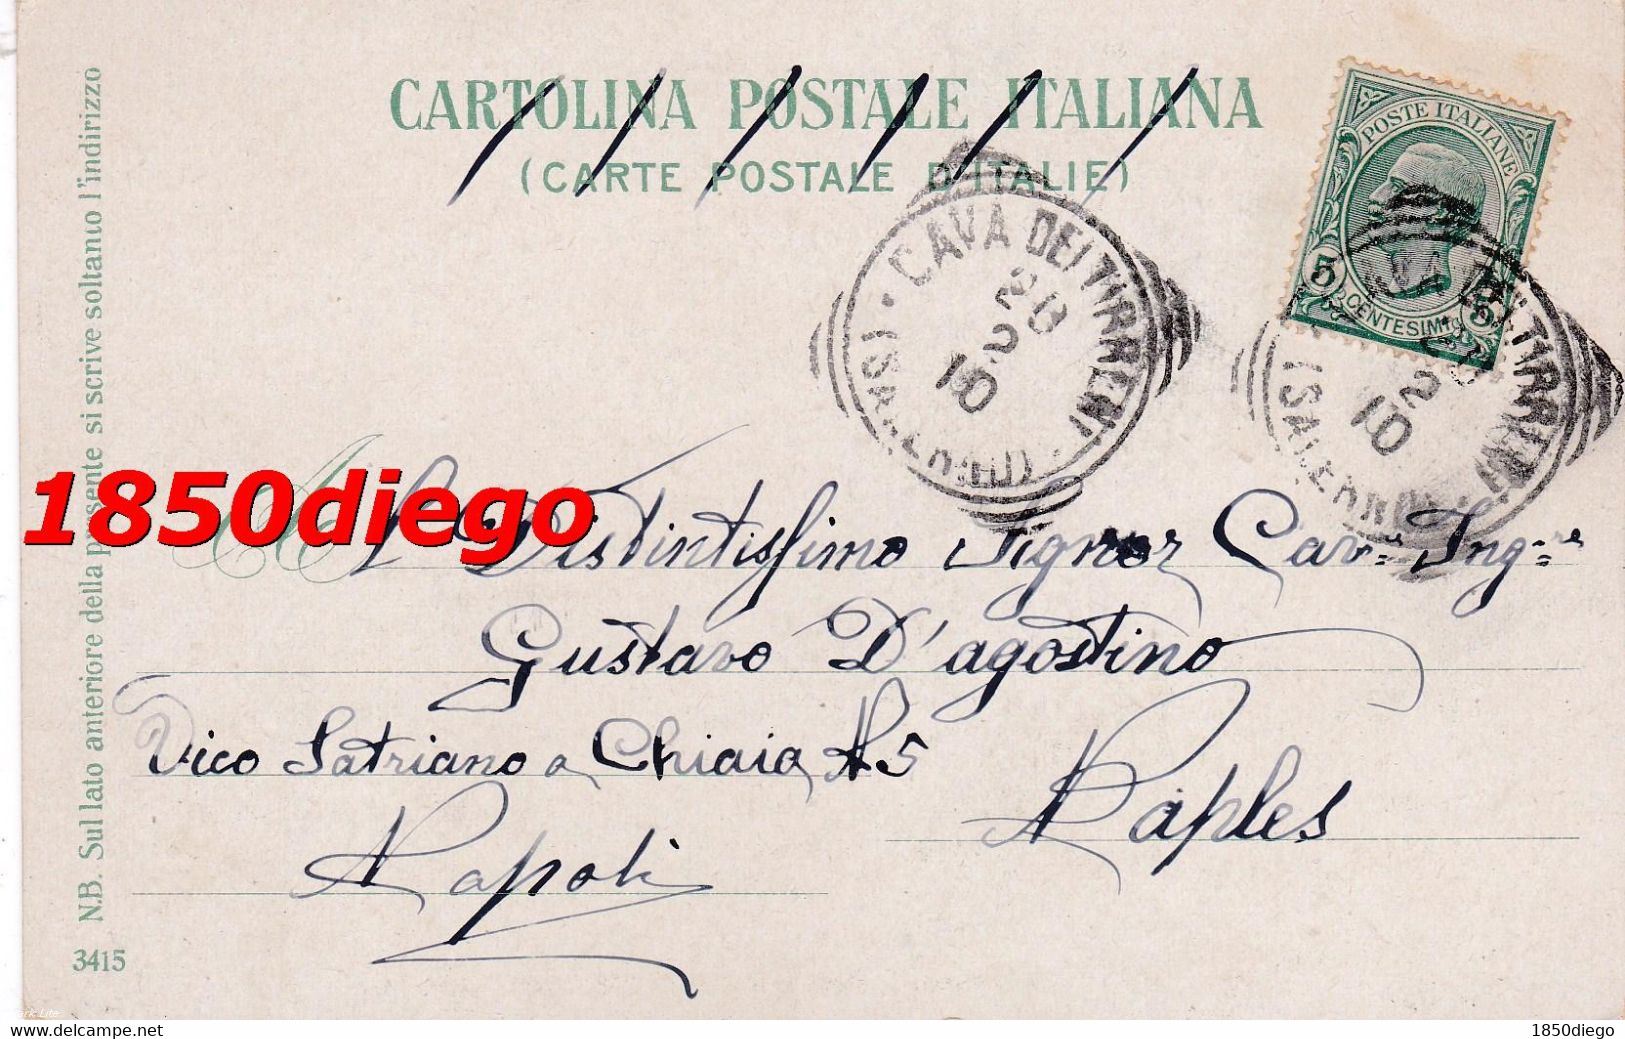 CARTOLINA POSTALE ITALIANA
(CARTE POSTALE D'ITALIE)
POSTE ITALIANE
5 CENTESIMI 5
CAVA DEI TIRRENI
(SALERNO)
20
2
10
(SALERNO)
2
10
N.B. Sul lato anteriore della presente si scrive soltanto l'indirizzo
1850diego
Al Distintissimo Signor Cav=re Ing=re
Gustavo D'agostino
Vico Satriano a Chiaia N 5
Napoli
Naples
3415
www.delcampe.net
1850diego